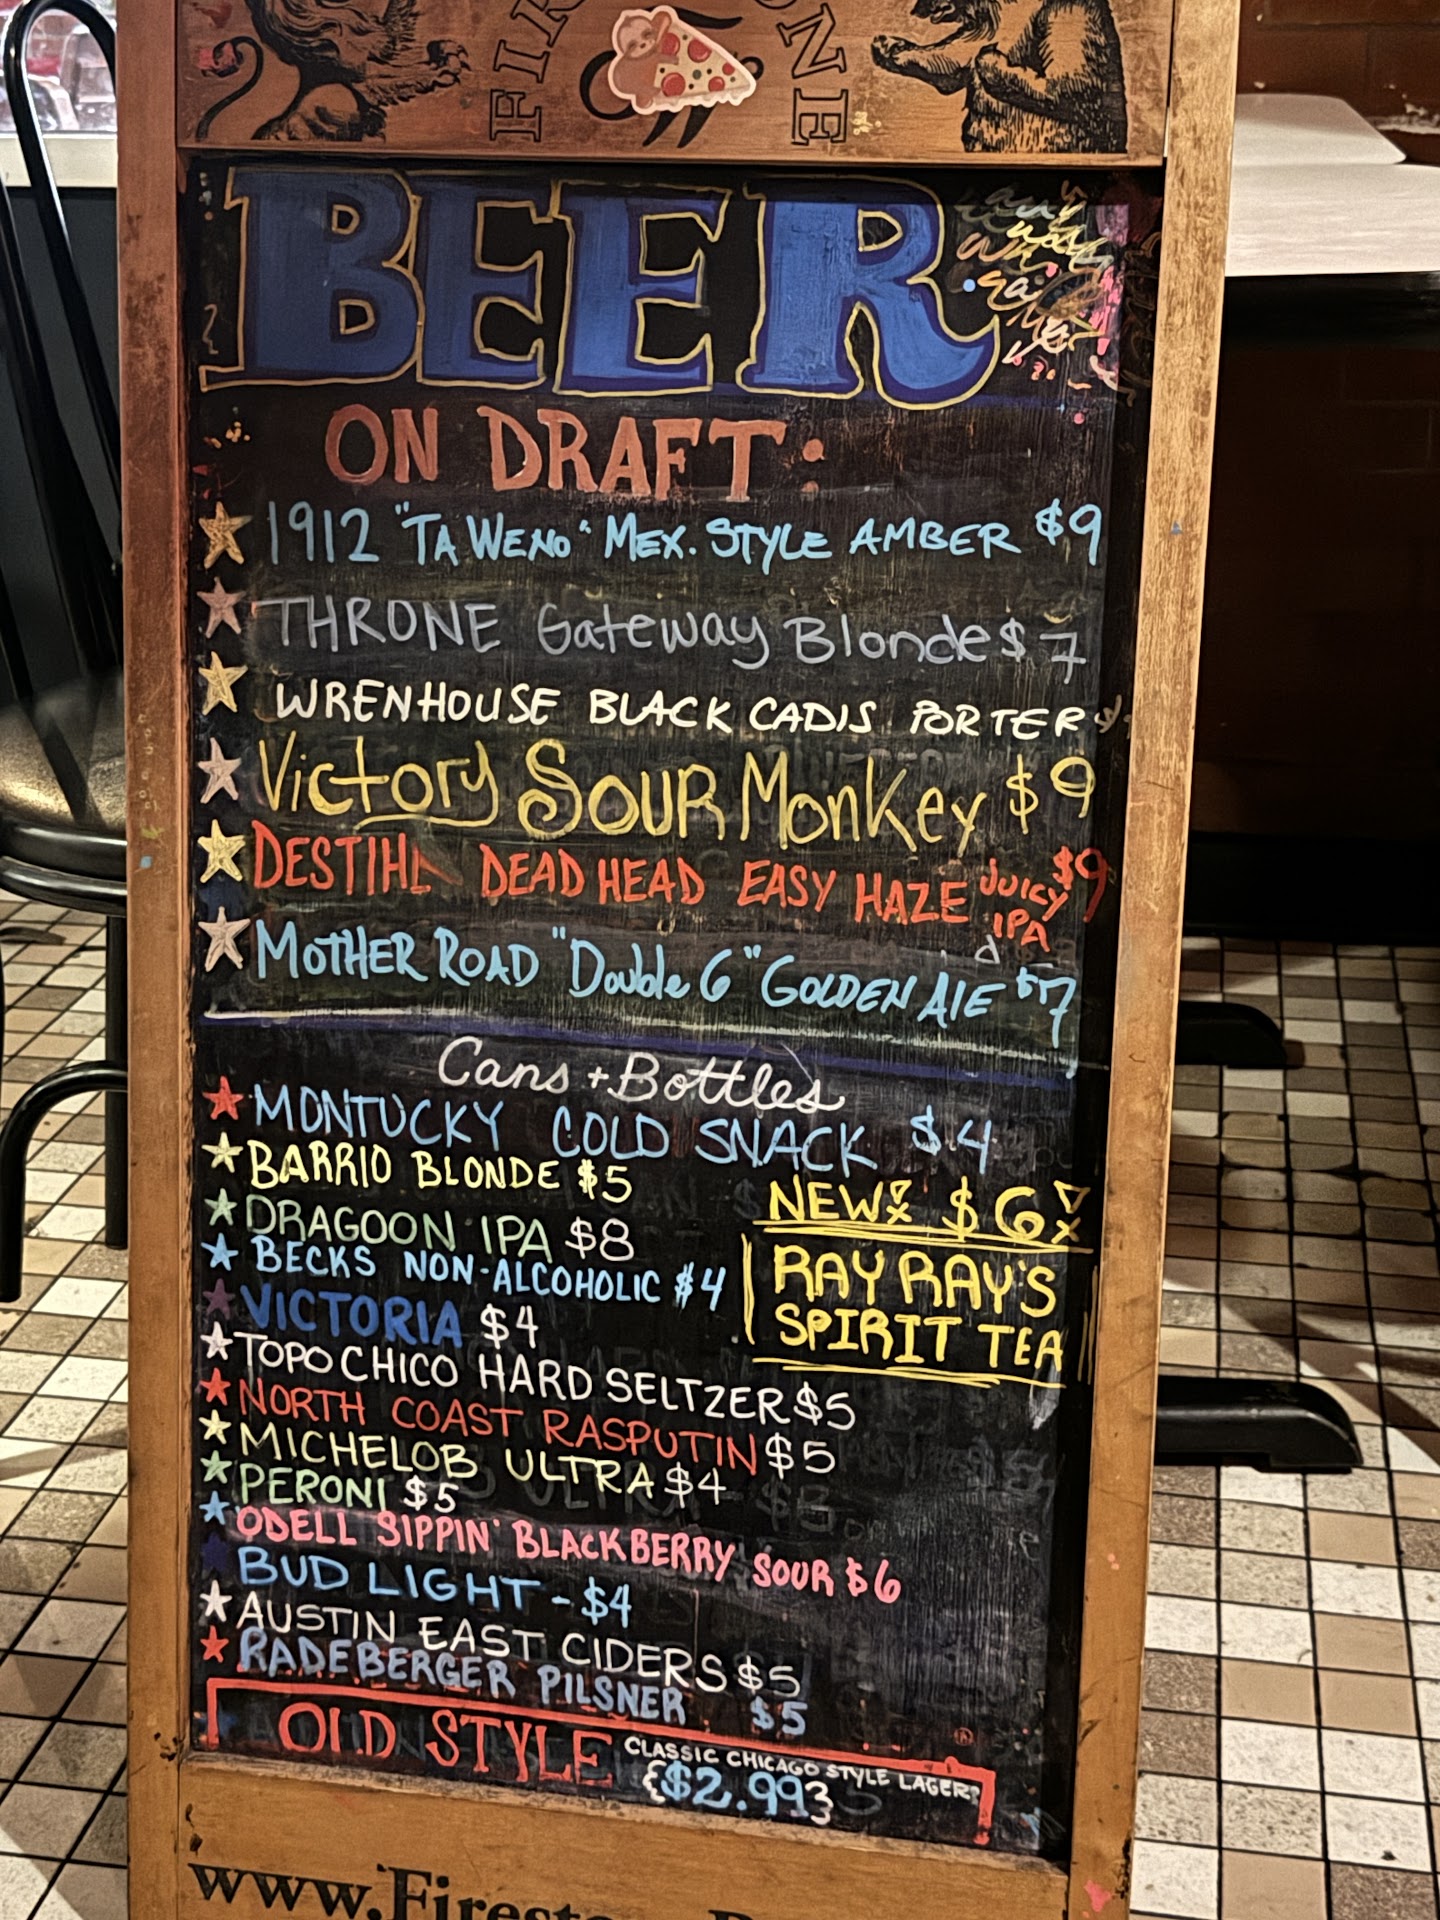 FIRESTONE
BEER
ON DRAFT:
1912 "TA WENO" MEX. STYLE AMBER $9
THRONE Gateway Blonde $7
WRENHOUSE BLACK CADIS PORTER
Victory SOUR MonKey $9
DESTIHL DEAD HEAD EASY HAZE JUICY IPA $9
MOTHER ROAD "Double 6" GOLDEN AlE $7
Cans + Bottles
MONTUCKY COLD SNACK $4
BARRIO BLONDE $5
DRAGOON IPA $8
BECKS NON-ALCOHOLIC $4
VICTORIA $4
TOPO CHICO HARD SELTZER $5
NORTH COAST RASPUTIN $5
MICHELOB ULTRA $4
PERONI $5
ODELL SIPPIN' BLACKBERRY SOUR $6
BUD LIGHT - $4
AUSTIN EAST CIDERS $5
RADEBERGER PILSNER $5
NEW! $6!
RAY RAY'S
SPIRIT TEA
OLD STYLE CLASSIC CHICAGO STYLE LAGER
{$2.99}
www.Firesto